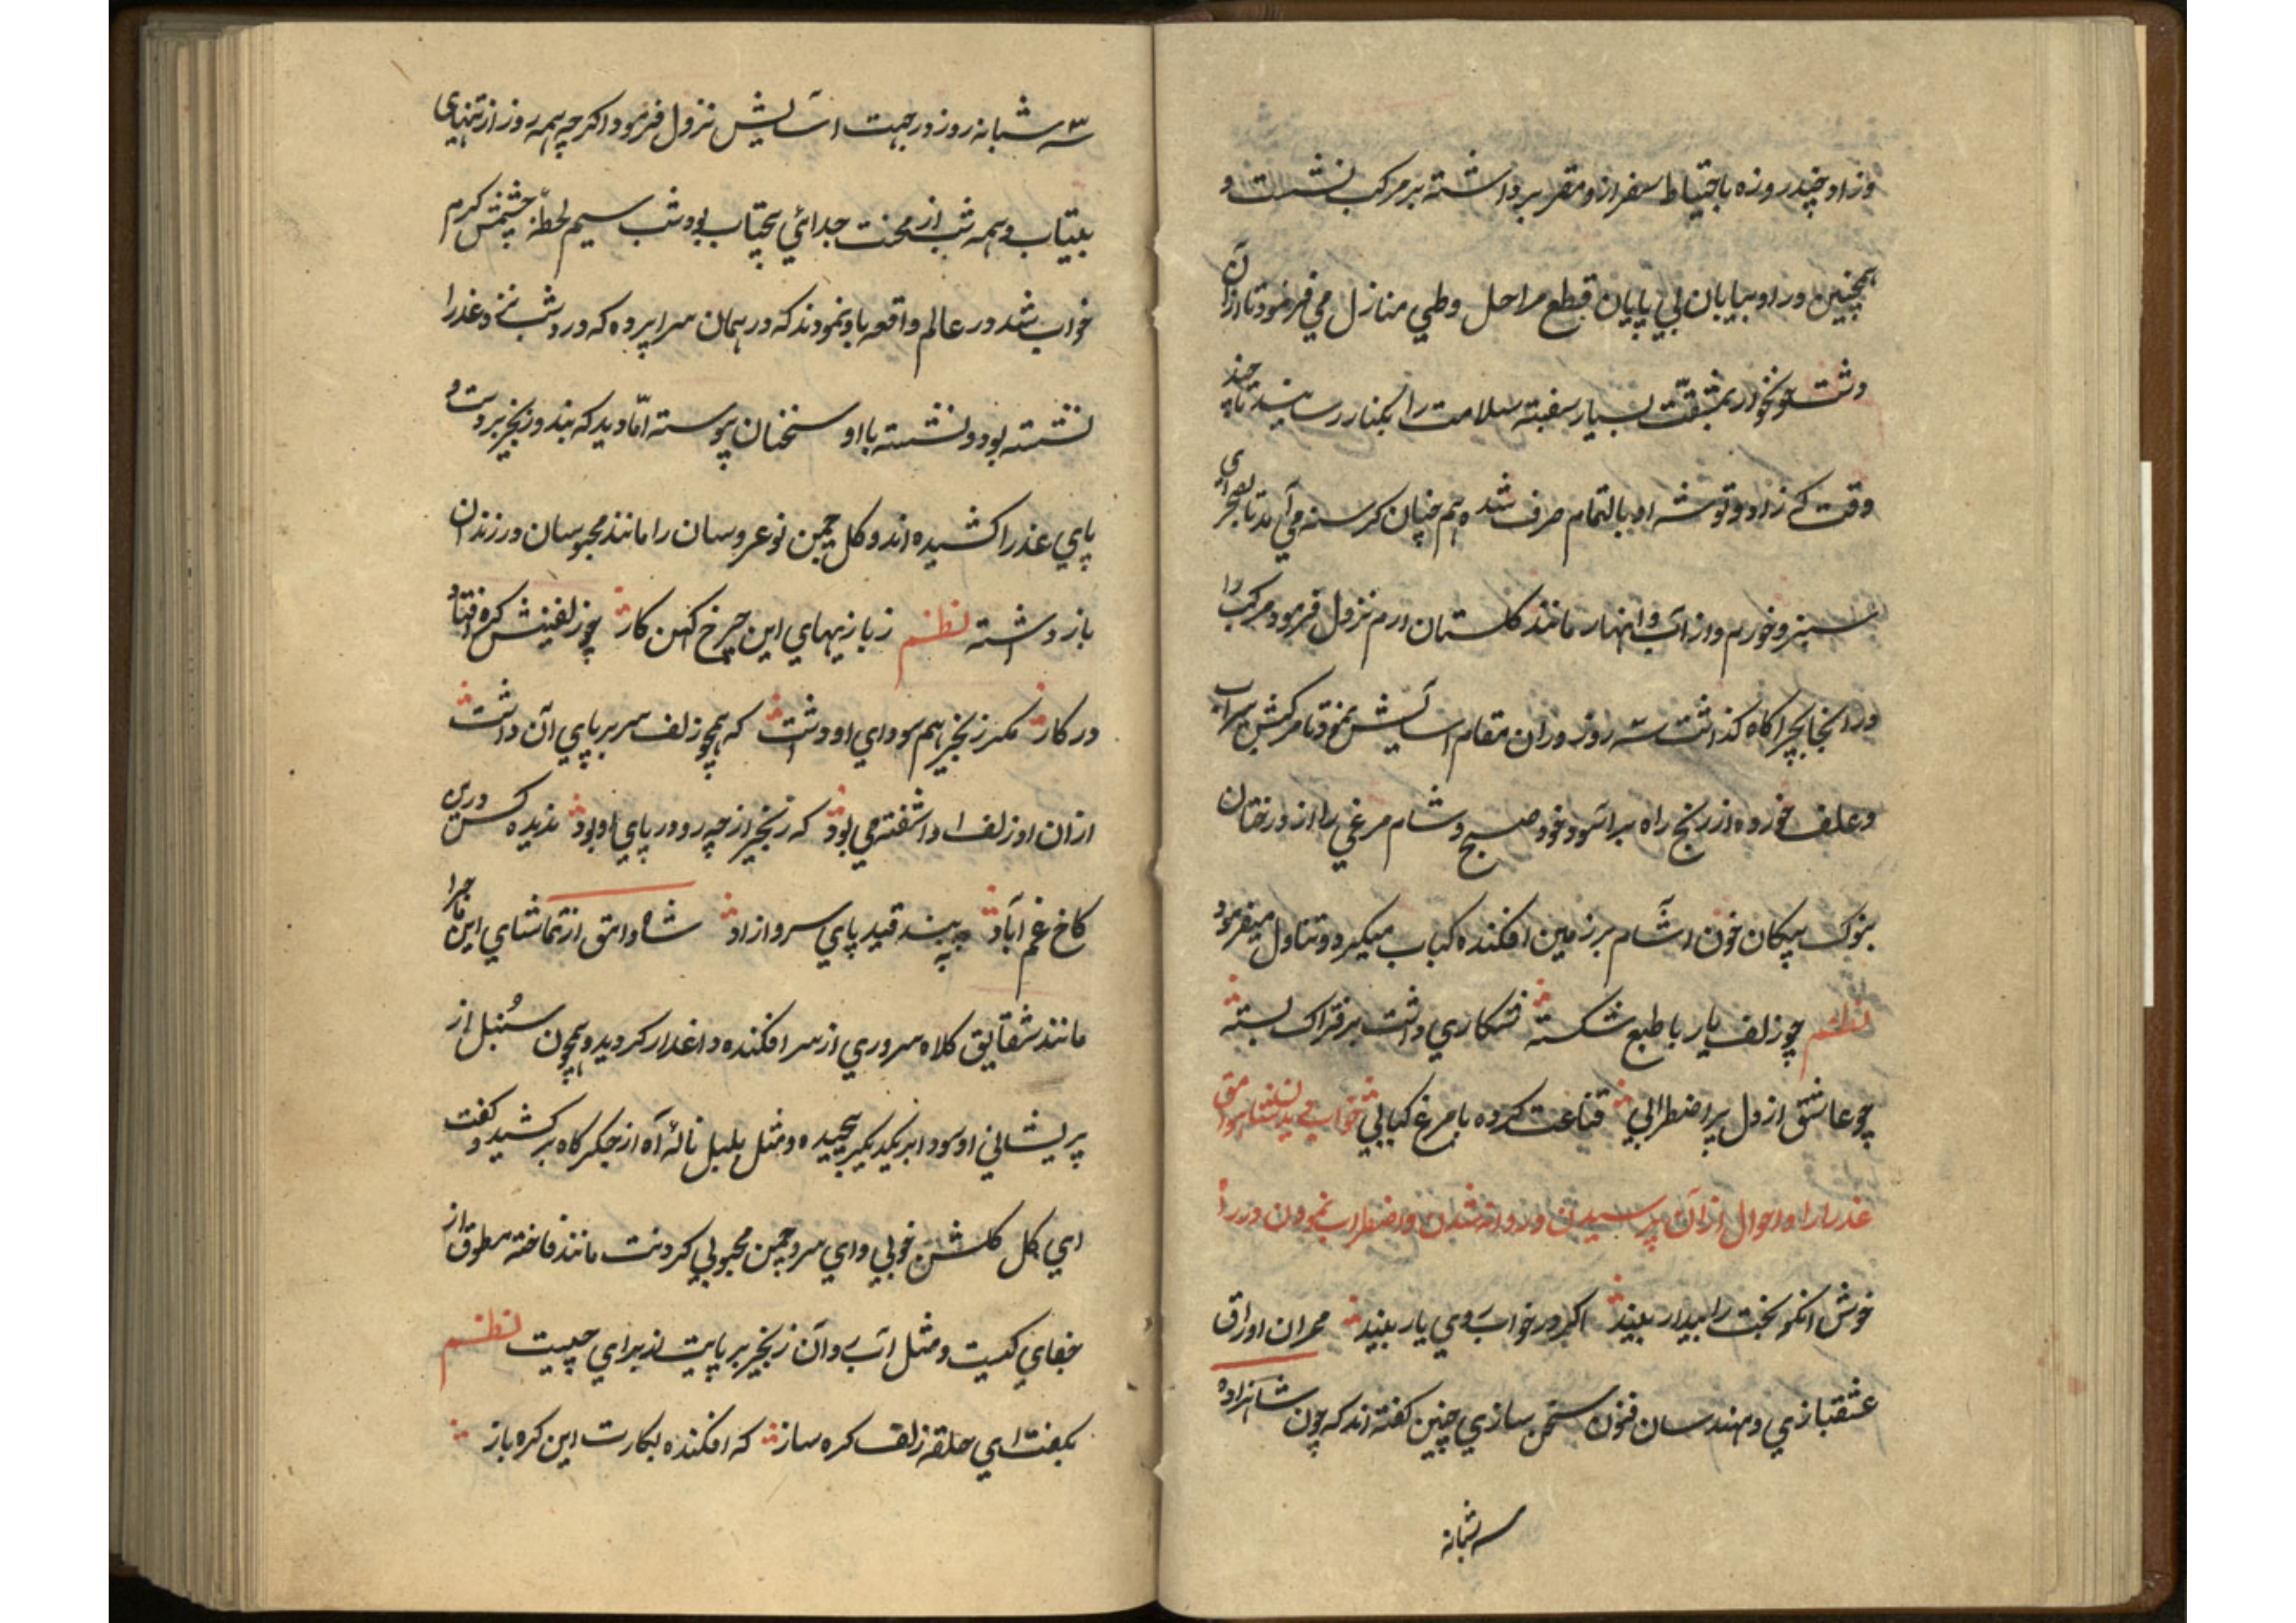 وزاد چند روزه باحتیاط سفر از و مقرر برداشته بر مرکب نشست و
همچنین در او بیابان بي پایان قطع مراحل وطي منازل مي فرمود تا ازان
دشت خونخوار بمشقّت بسیار سفینه سلامت را بکنار رسانید تا چند
وقت که زاد و توشه او بالتمام صرف شد هم چنان کرسنه مي آمد تا بصحرای
سبز و خورم و از آب و انهار مانند کلستان ارم نزول فرمود مرکب را
در انجا بچراکاه کذاشت سه روز دران مقام اسآیش نمود تا مرکبش سیراب
و علف خورده از رنج راه براسود و خود صبح و شام مرغي را از درختان
بنوک پیکان خون اشآم بر زمین افکنده کباب میکرد و تناول میفرمود
نظم چو زلف یار با طبع شکسته شکاري داشت بر فتراک بسته
چو عاشق از دل پر اضطرابي قناعت کرده با مرغ کبابي خواب دیدن شاه وامق
عذرا را و احوال ازان پرسیدن و روانه شدن و اضطراب نمودن در راه
خوش انکو بخت را بیدار بیند اکر در خواب روي یار بیند محرران اوراق
عشقبازي و مهندسان فنون سخن سازي چنین کفته اند که چون شاهزاده
سه شبانه
سه شبانه روز در جهت اسآیش نزول فرمود اکرچه همه روز از تنهای
بیتاب و همه شب از محنت جدائي بیخواب بود شب سیم لحظهٔ چشمش کرم
خواب شد در عالم واقعه باو نمودند که در همان سراپرده که در دشت نزد عذرا
نشسته بود و نشسته با او سخنان پیوسته امّا دید که بند و زنجیر بر دست و
پاي عذرا کشیده اند و کل چمن نوعروسان را مانند محبوسان در زندان
باز داشته نظم ز بازیهاي این چرخ کهن کار چو زلفینش کره افتاد
در کار مکر زنجیر هم سوداي او داشت که همچو زلف سر بر پاي آن داشت
ازان او زلف را اشفته مي بود که زنجیر از چه رو در پاي او بود ندیده کس درین
کاخ غم آباد به بند قید پاي سرو ازاد شاه وامق از تماشاي این ماجرا
مانند شقایق کلاه سروري از سر افکنده داغدار کردید و همچون سُنبل از
پریشاني او سودا بر یکدیکر پیچیده و مثل بلبل نالهٔ آه از جکرکاه برکشید و کفت
اي کل کلشن خوبي و اي سرو چمن محبوبي کردنت مانند فاخته مطوق از
جفاي کیست و مثل آب روان زنجیر بر پایت از براي چیست نظم
بکفت اي حلقه زلف کره ساز که افکنده بکارت این کره باز